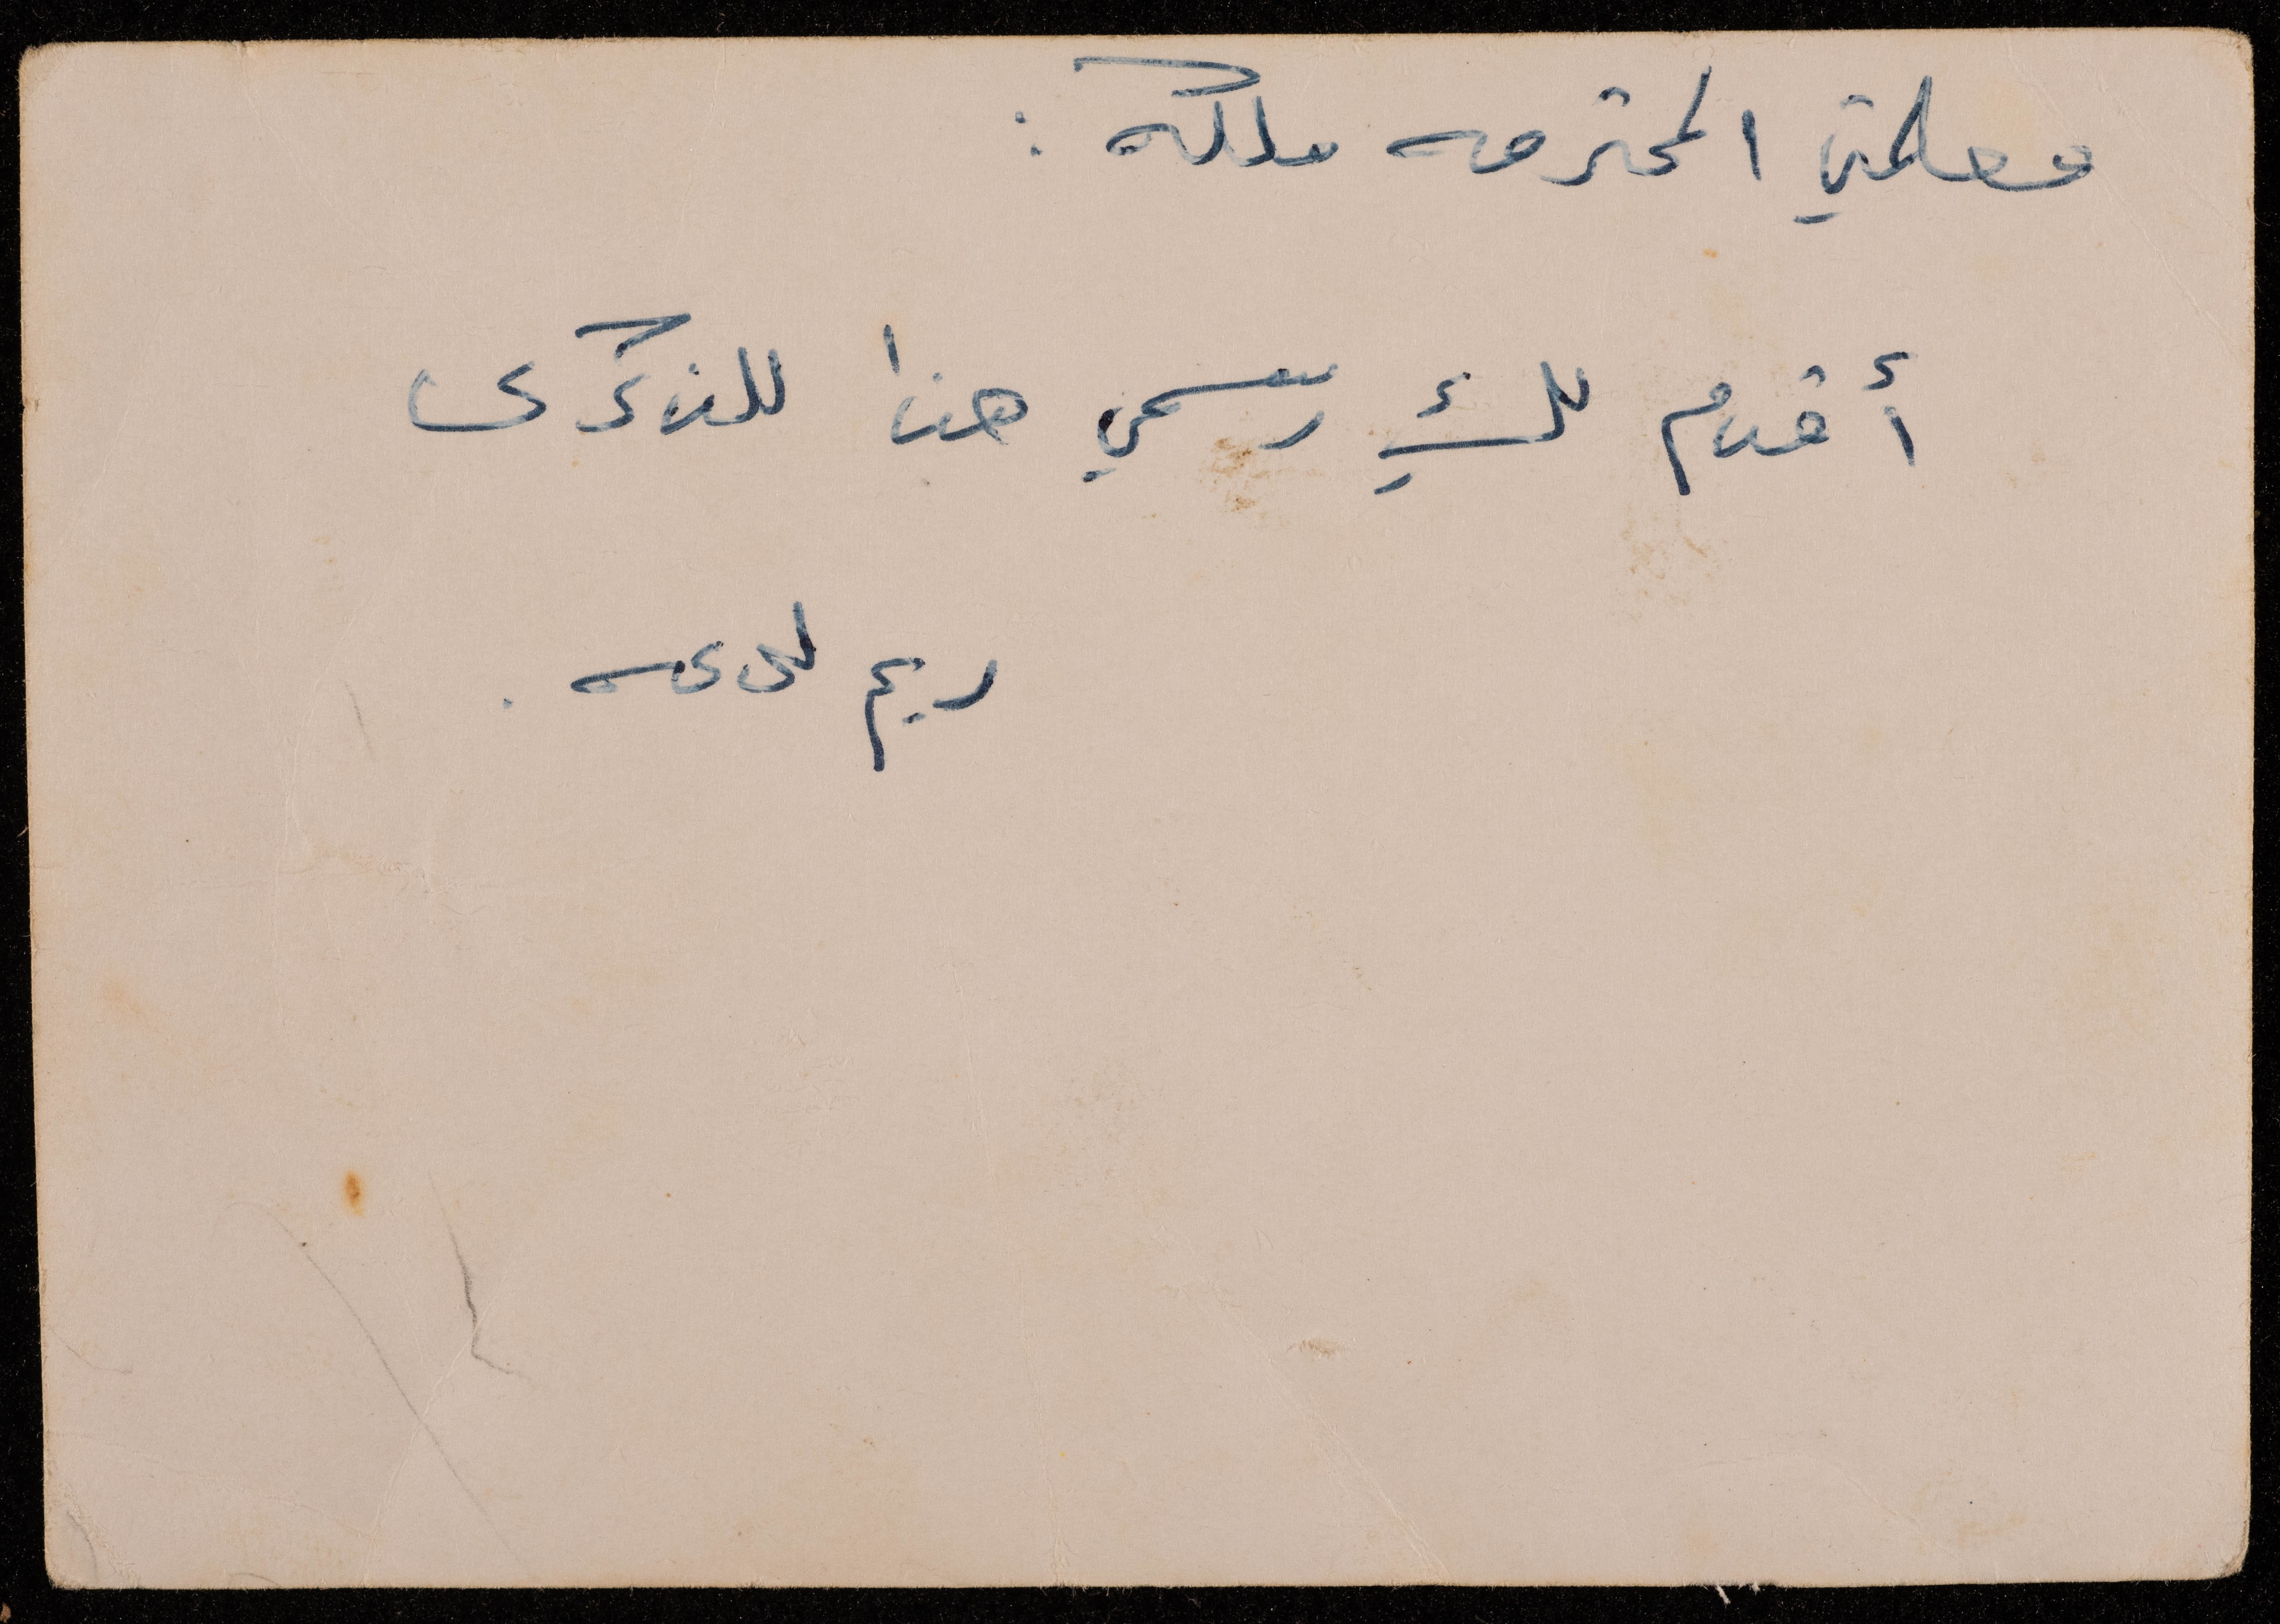 معلمتي المحترمه ملكه :
أقدم لكِ رسمي هذا للذكرى
ريم